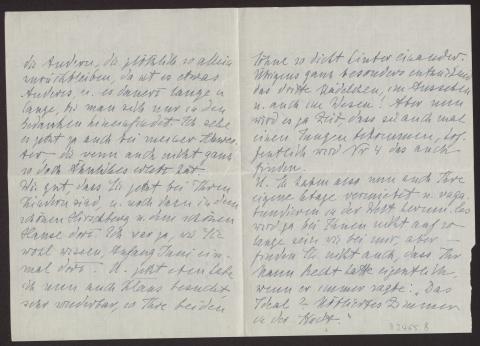 die Andern, die plötzlich so allein
zurückbleiben, da ist es etwas
Anderes, u. es dauert lange u.
lange, bis man sich nur in den
Gedanken hineinfindet. Ich sehe
es jetzt ja auch bei meiner Schwes-
ter die wenn auch nicht ganz
so doch Ähnliches erlebt hat.
Wie gut, dass Sie jetzt bei Ihren
Kindern sind u. noch dazu in dem
schönen Hirschberg u. dem schönen
Hause dort. Ich war ja, wie Sie
wohl wissen, Anfang Juni ein-
mal dort. U. jetzt eben habe
ich nun auch Klaus besucht
sehr wunderbar, so Ihre beiden
Söhne so dicht hinter einander.
Übrigens ganz besonders entzückend
das dritte Mädelchen, im Aussehen
u. auch im Wesen! Aber nun
wird es ja Zeit dass sie auch mal
einen Jungen bekommen, hof-
fentlich wird Nr 4 das auch
finden.
U. Sie haben also nun auch Ihre
eigene Etage vermietet u. vaga-
bundieren in der Welt herum. Das
wird ja bei Ihnen nicht auf so
lange sein wie bei mir, aber
finden Sie nicht auch, dass Ihr
Mann Recht hatte eigentlich,
wenn er immer sagte: "Das
Ideal 2 möblierte Zimmer
in der Stadt."